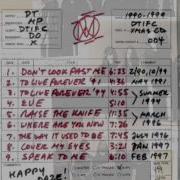 DT
MP
DTIFC
DO
X
1990-1999
DTIFC
XMAS CD
004
1. DON'T LOOK PAST ME 5:33 2/90,10/99
2. TO LIVE FOREVER '91 4:31 NOV 1991
3. TO LIVE FOREVER '94 4:55 SUMMER
4. EVE 5:10 1994
5. RAISE THE KNIFE 11:35 MARCH
6. WHERE ARE YOU NOW 7:26 1996
7. THE WAY IT USED TO BE 7:45 JULY 1996
8. COVER MY EYES 3:21 JAN 1997
9. SPEAK TO ME 6:19 FEB 1997
HAPPY
DAZE!